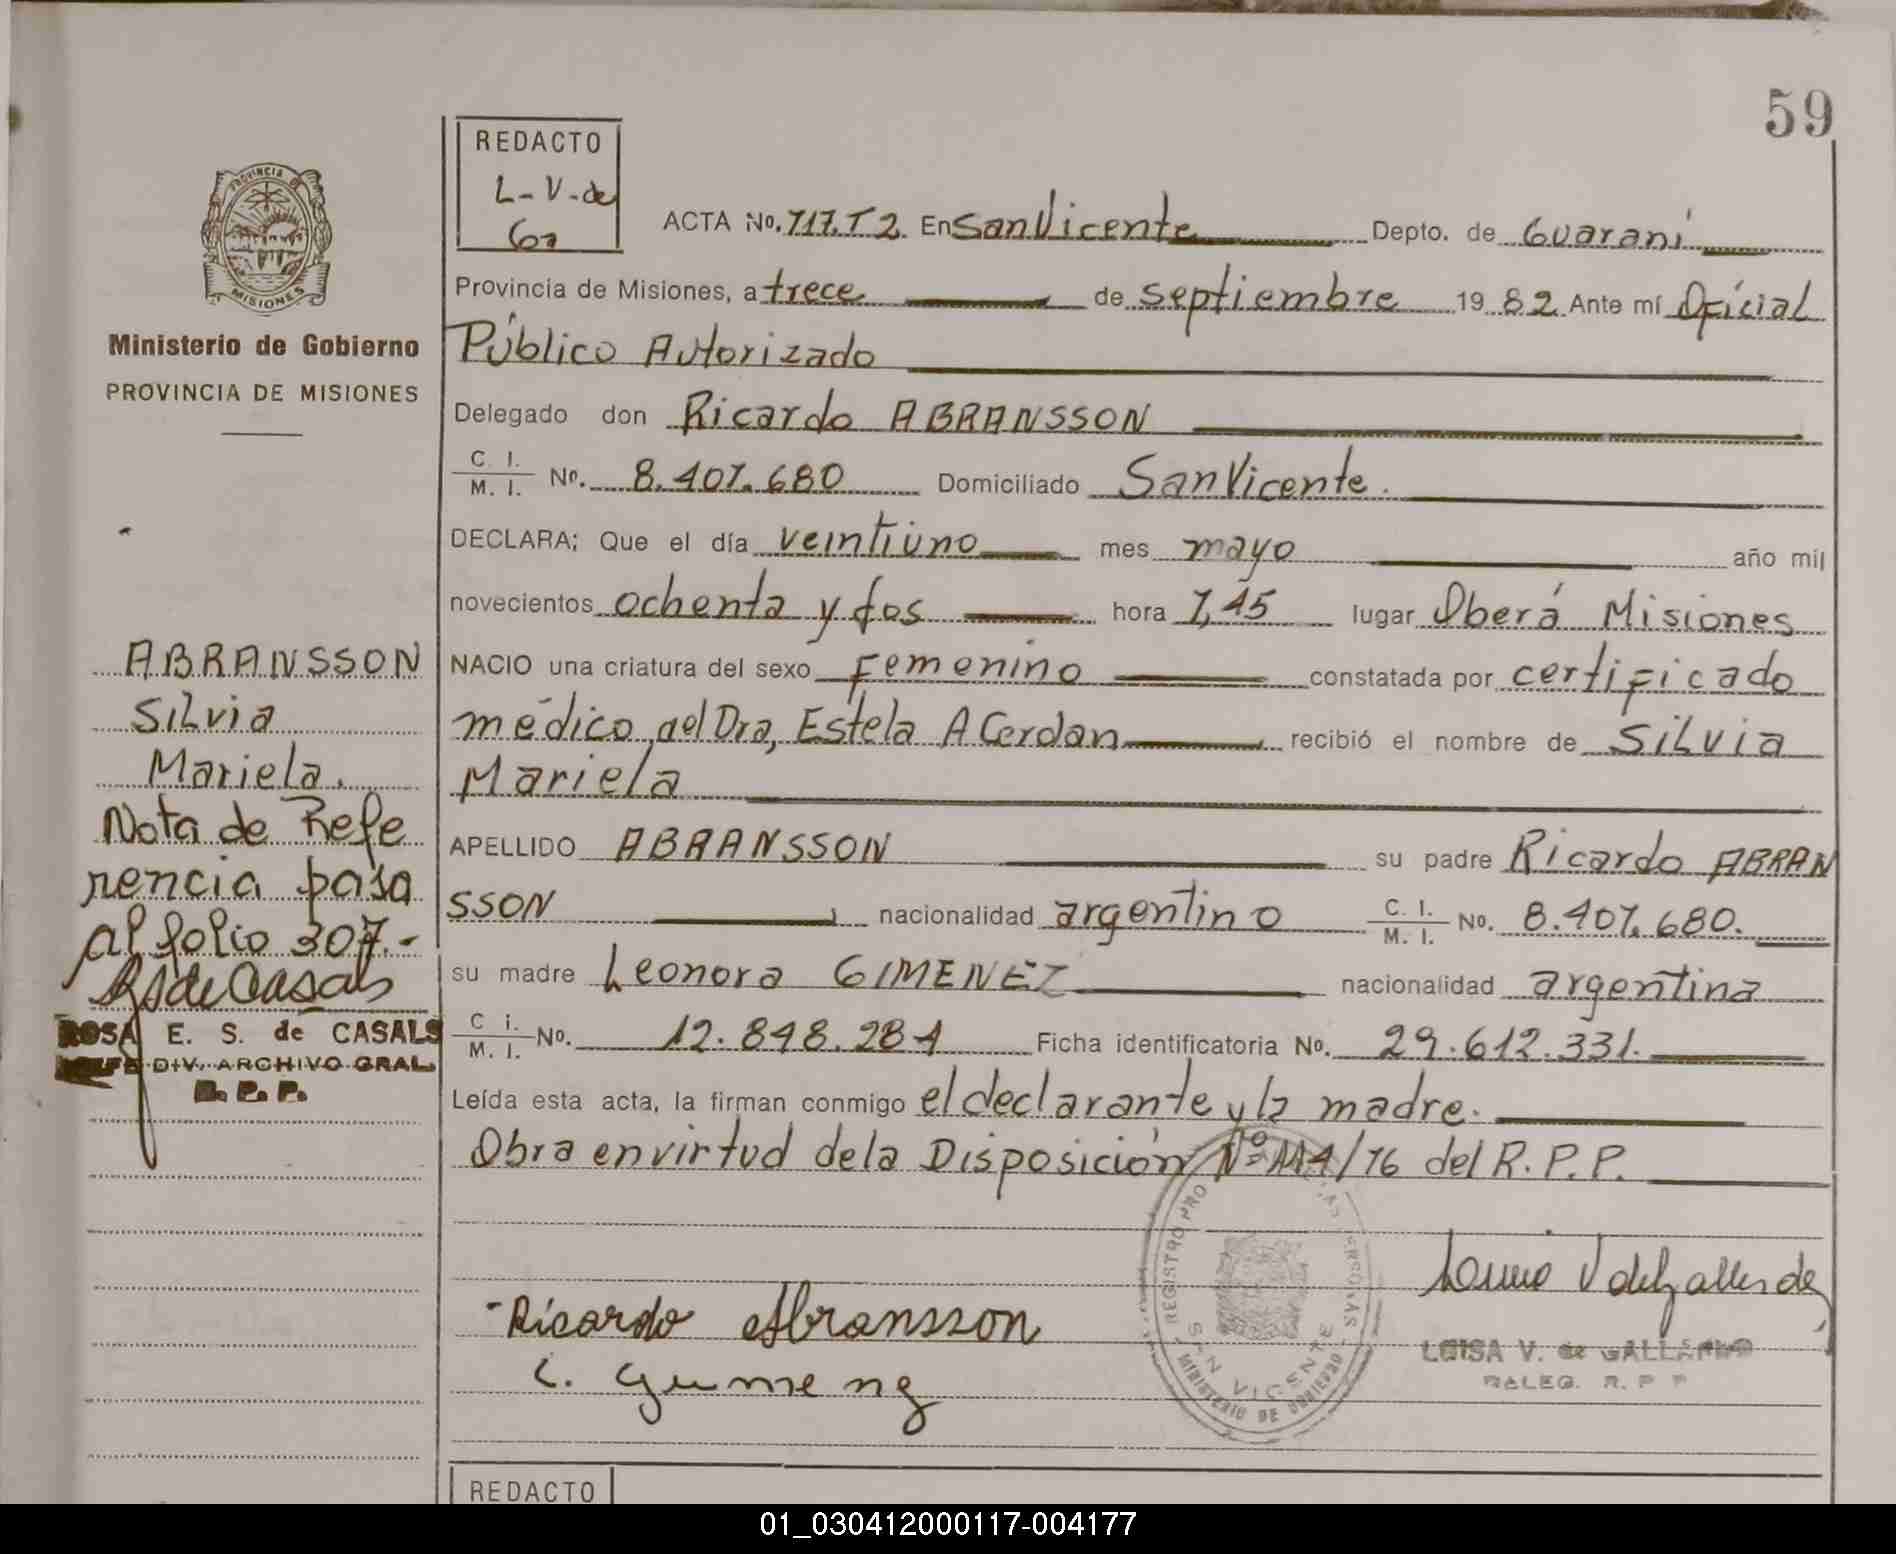 59
PROVINCIA DE
MISIONES
Ministerio de Gobierno
PROVINCIA DE MISIONES
REDACTO
L-V-de
Ga
ACTA No. 717.T2. En San Vicente Depto. de Guaraní
Provincia de Misiones, a trece de septiembre 1982 Ante mí Oficial
Público Autorizado
Delegado don Ricardo ABRANSSON
C. I.
M. I. No. 8.407.680 Domiciliado San Vicente.
DECLARA; Que el día veintiuno mes mayo año mil
novecientos ochenta y dos hora 7,45 lugar Oberá Misiones
NACIO una criatura del sexo Femenino constatada por certificado
médico, del Dra, Estela A Cerdan recibió el nombre de Silvia
Mariela
APELLIDO ABRANSSON su padre Ricardo ABRAN
SSON nacionalidad argentino C. I.
M. I. No. 8.407.680.
su madre Leonora GIMENEZ nacionalidad argentina
C i.
M. I. No. 12.848.284 Ficha identificatoria No. 29.612.331.
Leída esta acta, la firman conmigo el declarante y la madre.
Obra en virtud de la Disposición Nº 114/76 del R.P.P.
ABRANSSON
Silvia
Mariela.
Nota de Refe
rencia pasa
al folio 307.-
RSdeCasals
ROSA E. S. de CASALS
JEFE DIV. ARCHIVO GRAL.
R. P. P.
-Ricardo Abransson
L. Gimenez
REGISTRO PRO
SAN VICENTE
MINISTERIO DE GOBIERNO
LUISA V. de GALLARDO
DALEG. R. P P
REDACTO
01_030412000117-004177